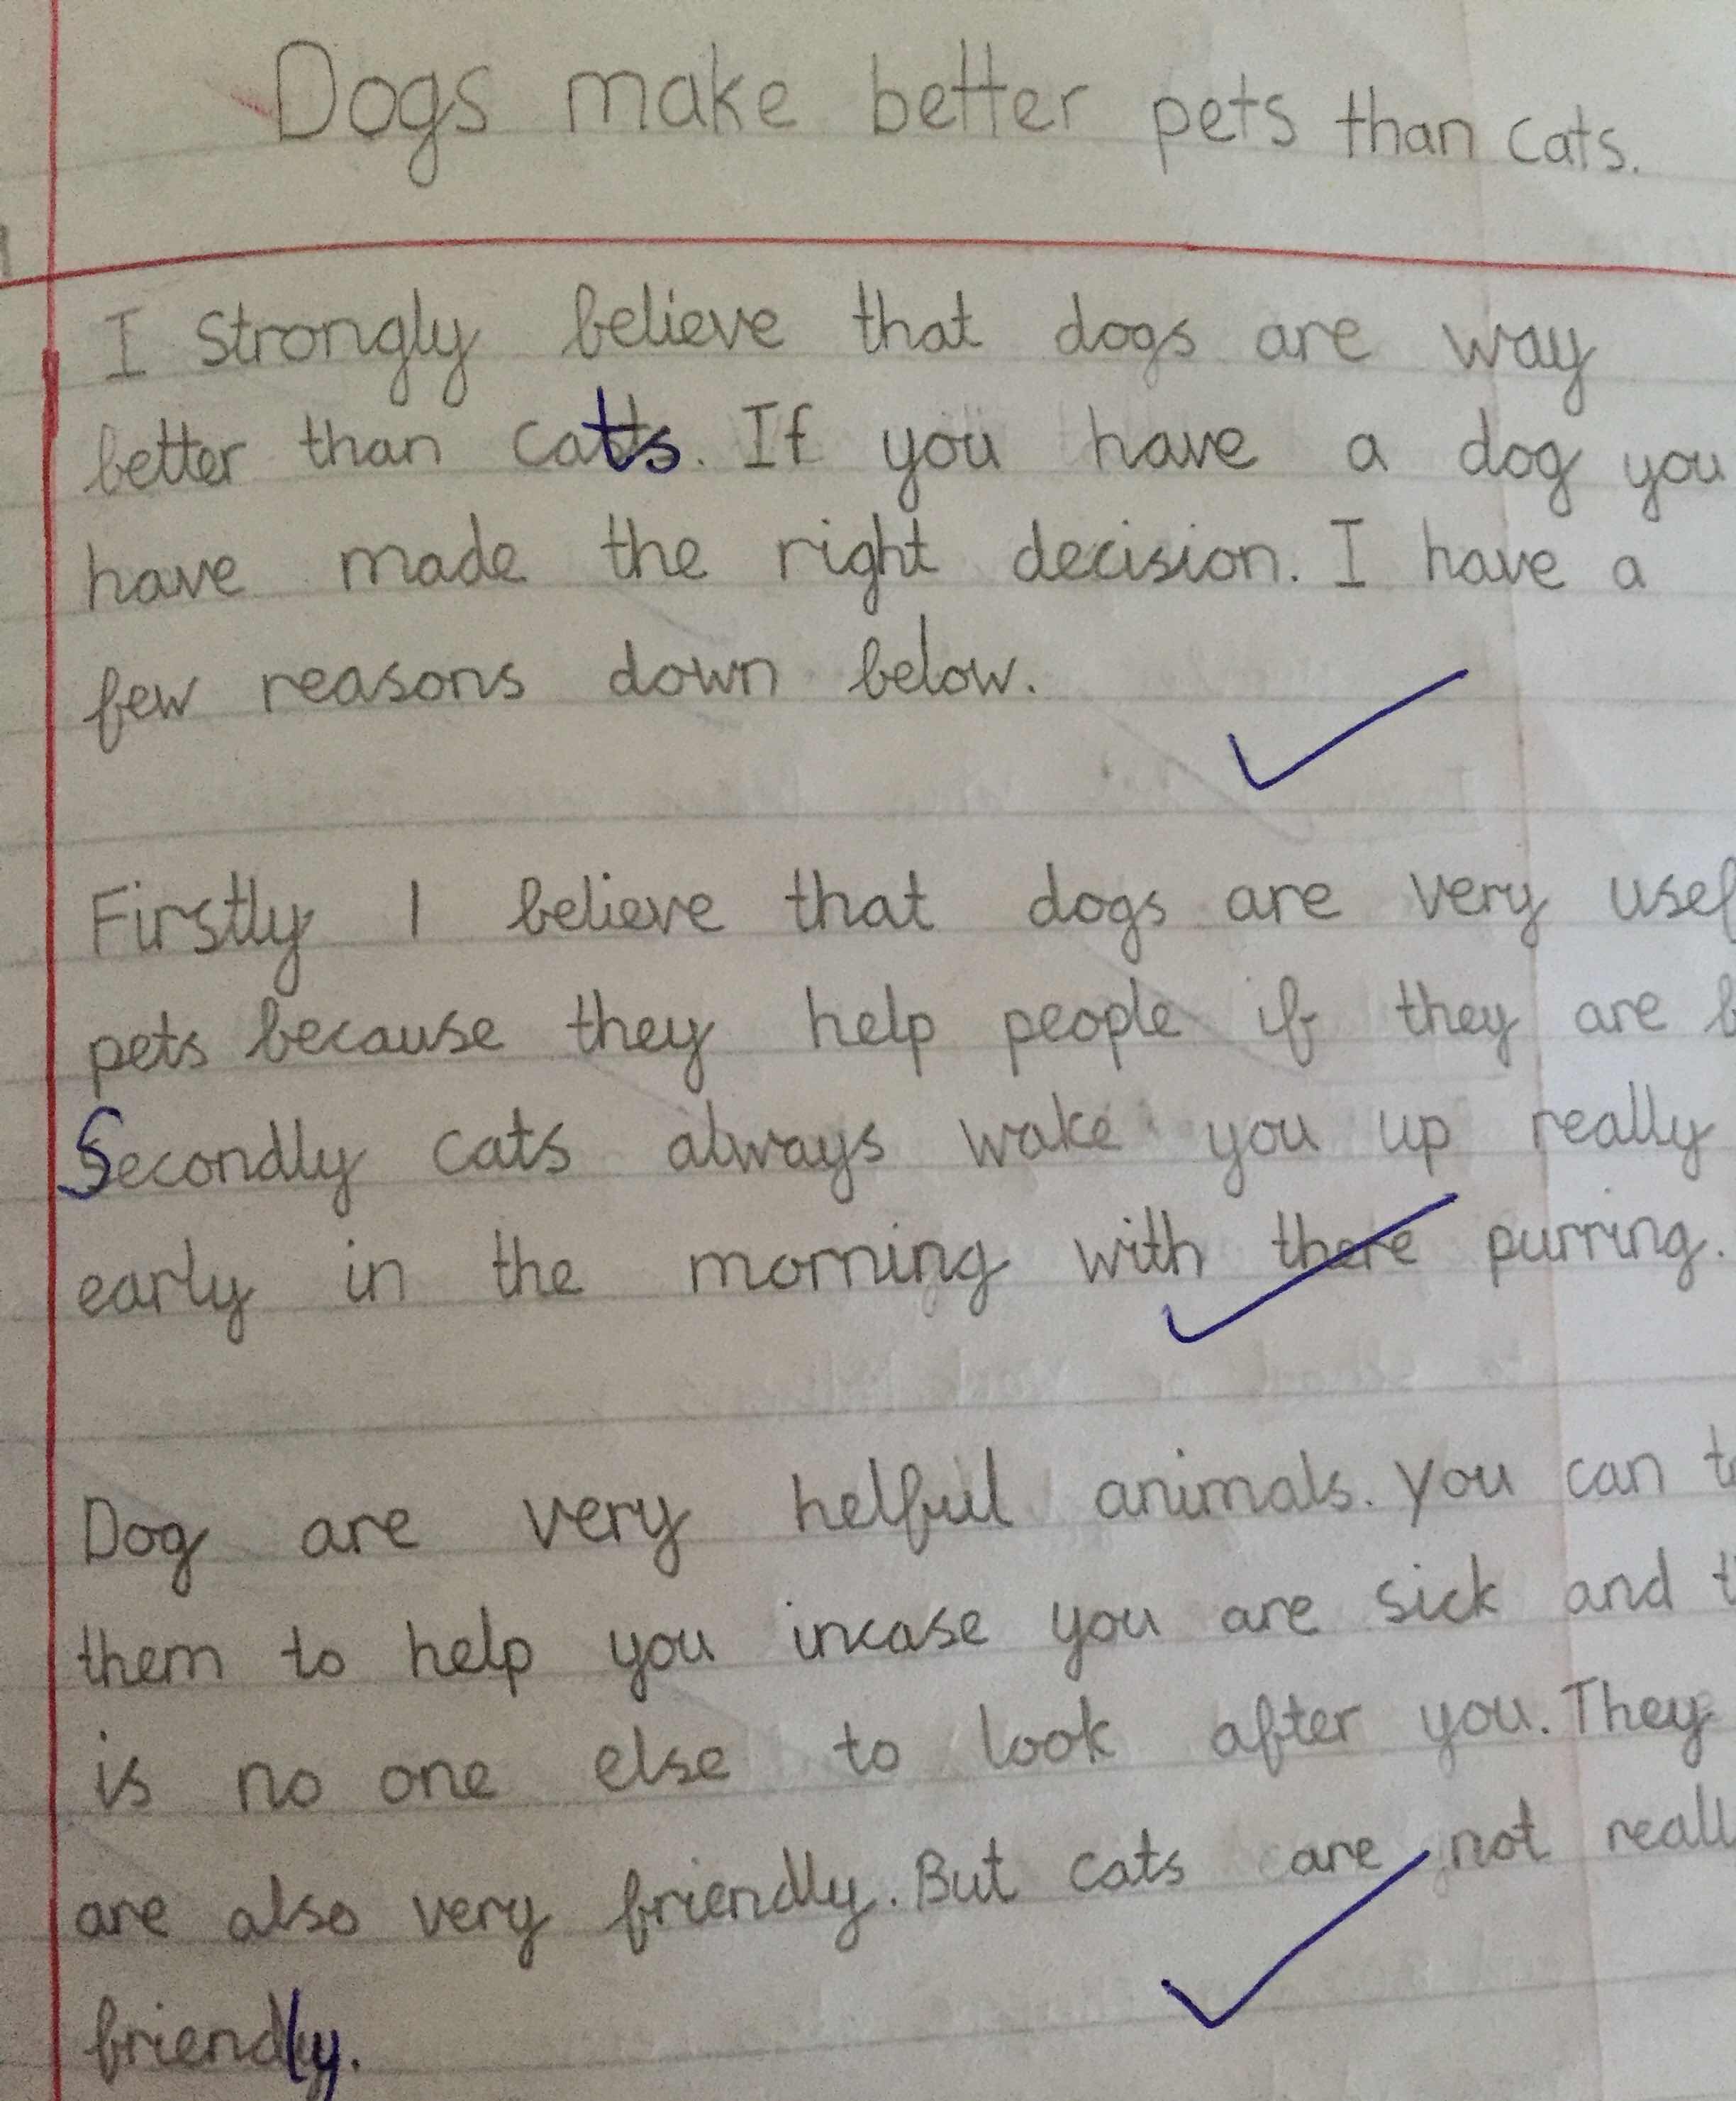 Dogs make better pets than cats.
I strongly believe that dogs are way
better than cats. If you have a dog you
have made the right decision. I have a
few reasons down below.
Firstly I believe that dogs are very usef
pets because they help people if they are b
Secondly cats always wake you up really
early in the morning with there purring.
Dog are very helful animals. You can
them to help you incase you are sick and
is no one else to look after you. They
are also very friendly. But cats are not reall
friendly.